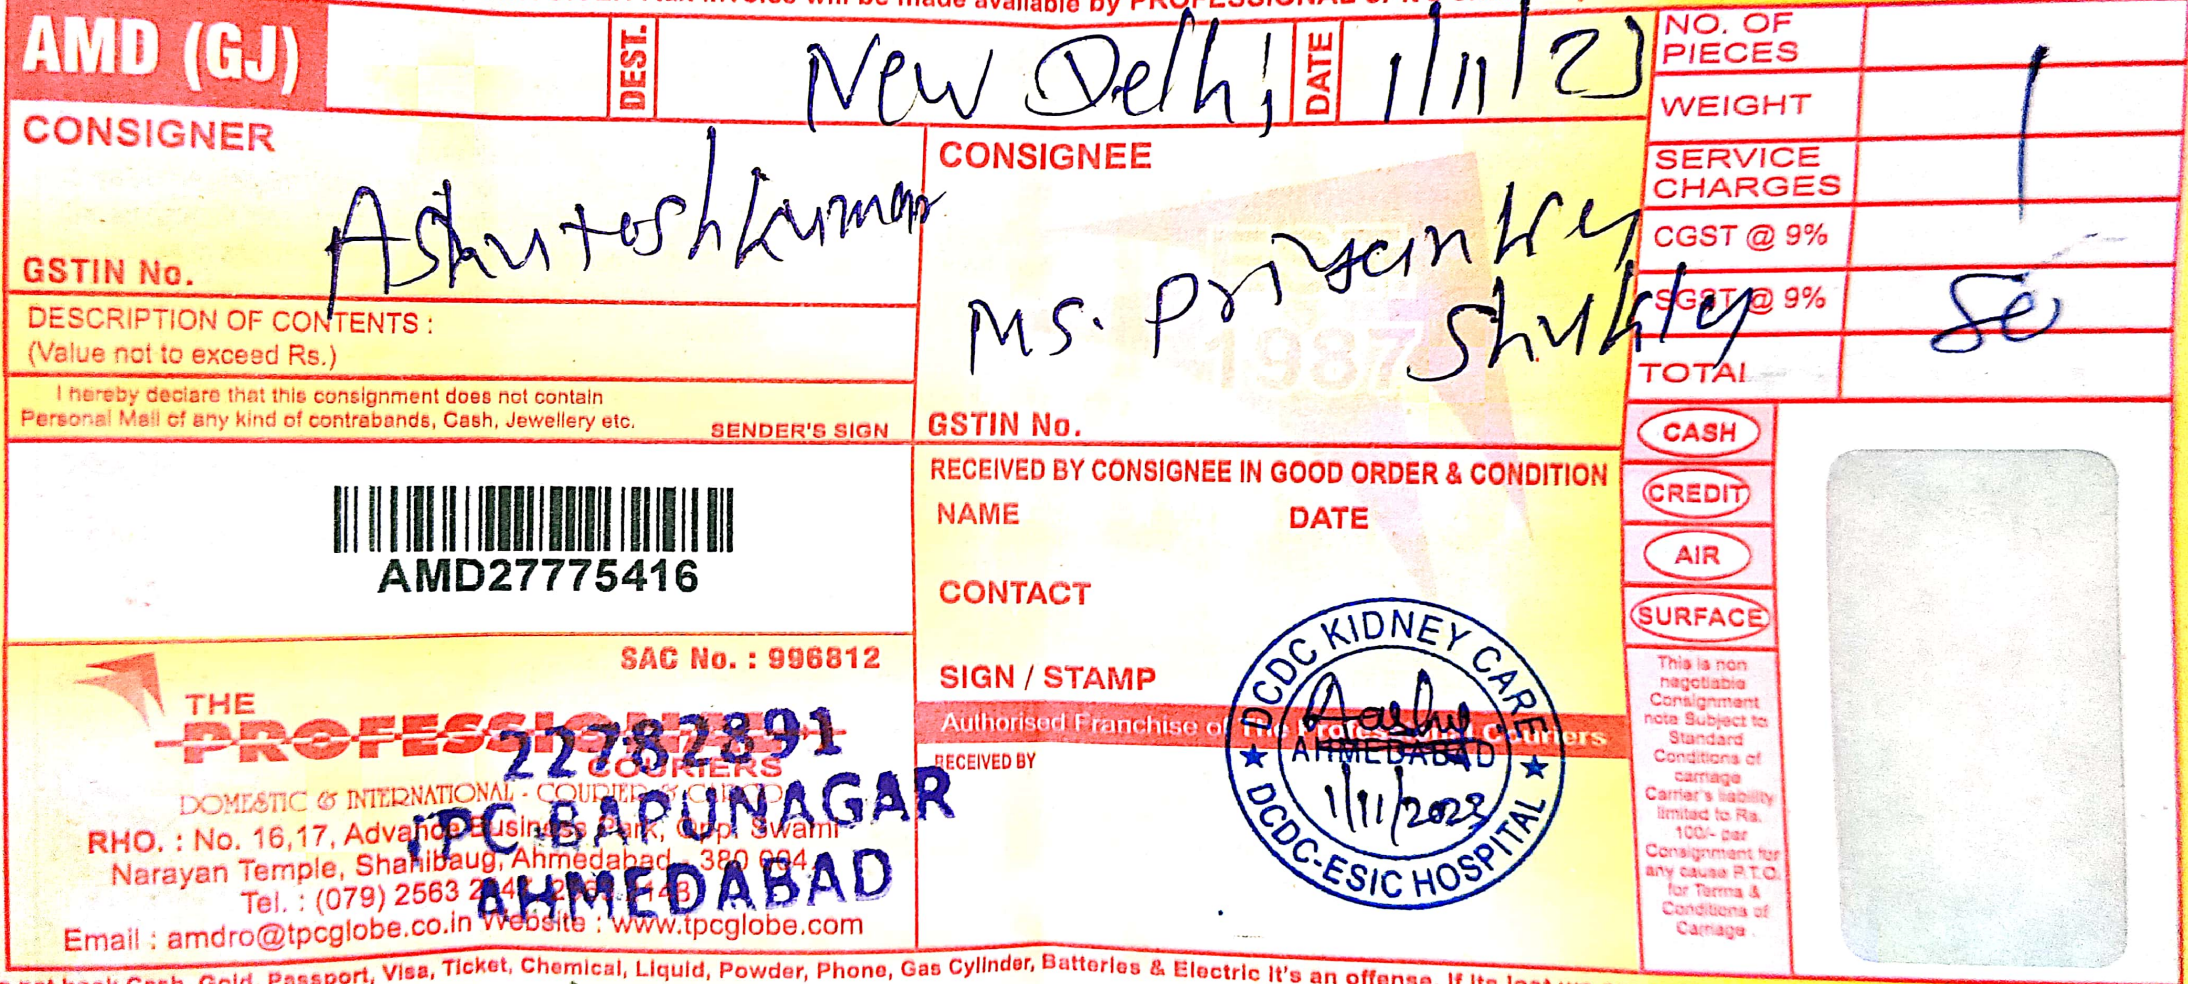 will be made available by PROFESSIONAL
AMD (GJ)
DEST.
New Delhi
DATE
1/11/23
NO. OF
PIECES
1
WEIGHT
SERVICE
CHARGES
CGST @ 9%
SGST @ 9%
TOTAL
CONSIGNER
Ashutosh kumar
GSTIN No.
DESCRIPTION OF CONTENTS :
(Value not to exceed Rs.)
I hereby declare that this consignment does not contain
Personal Mail of any kind of contrabands, Cash, Jewellery etc.
SENDER'S SIGN
CONSIGNEE
Ms. Priyanka
Shukla
1987
GSTIN No.
AMD27775416
RECEIVED BY CONSIGNEE IN GOOD ORDER & CONDITION
NAME
DATE
CONTACT
SIGN / STAMP
Authorised Franchise of The Professional Couriers
RECEIVED BY
DCDC KIDNEY CARE
AHMEDABAD
1/11/2023
DCDC-ESIC HOSPITAL
CASH
CREDIT
AIR
SURFACE
This is non
negotiable
Consignment
note Subject to
Standard
Conditions of
carriage
Carrier's liability
limited to Rs.
100/- per
Consignment for
any cause P.T.O.
for Terms &
Conditions of
Carriage.
SAC No. : 996812
THE
PROFESSIONAL
COURIERS
DOMESTIC & INTERNATIONAL - COURIER & CARGO
RHO. : No. 16,17, Advance Business Park, Opp. Swami
Narayan Temple, Shahibaug, Ahmedabad - 380 004.
Tel. : (079) 2563
Email : amdro@tpcglobe.co.in Website : www.tpcglobe.com
22782891
TPC-BAPUNAGAR
AHMEDABAD
not book Cash, Gold, Passport, Visa, Ticket, Chemical, Liquid, Powder, Phone, Gas Cylinder, Batteries & Electric It's an offense. If Its lost